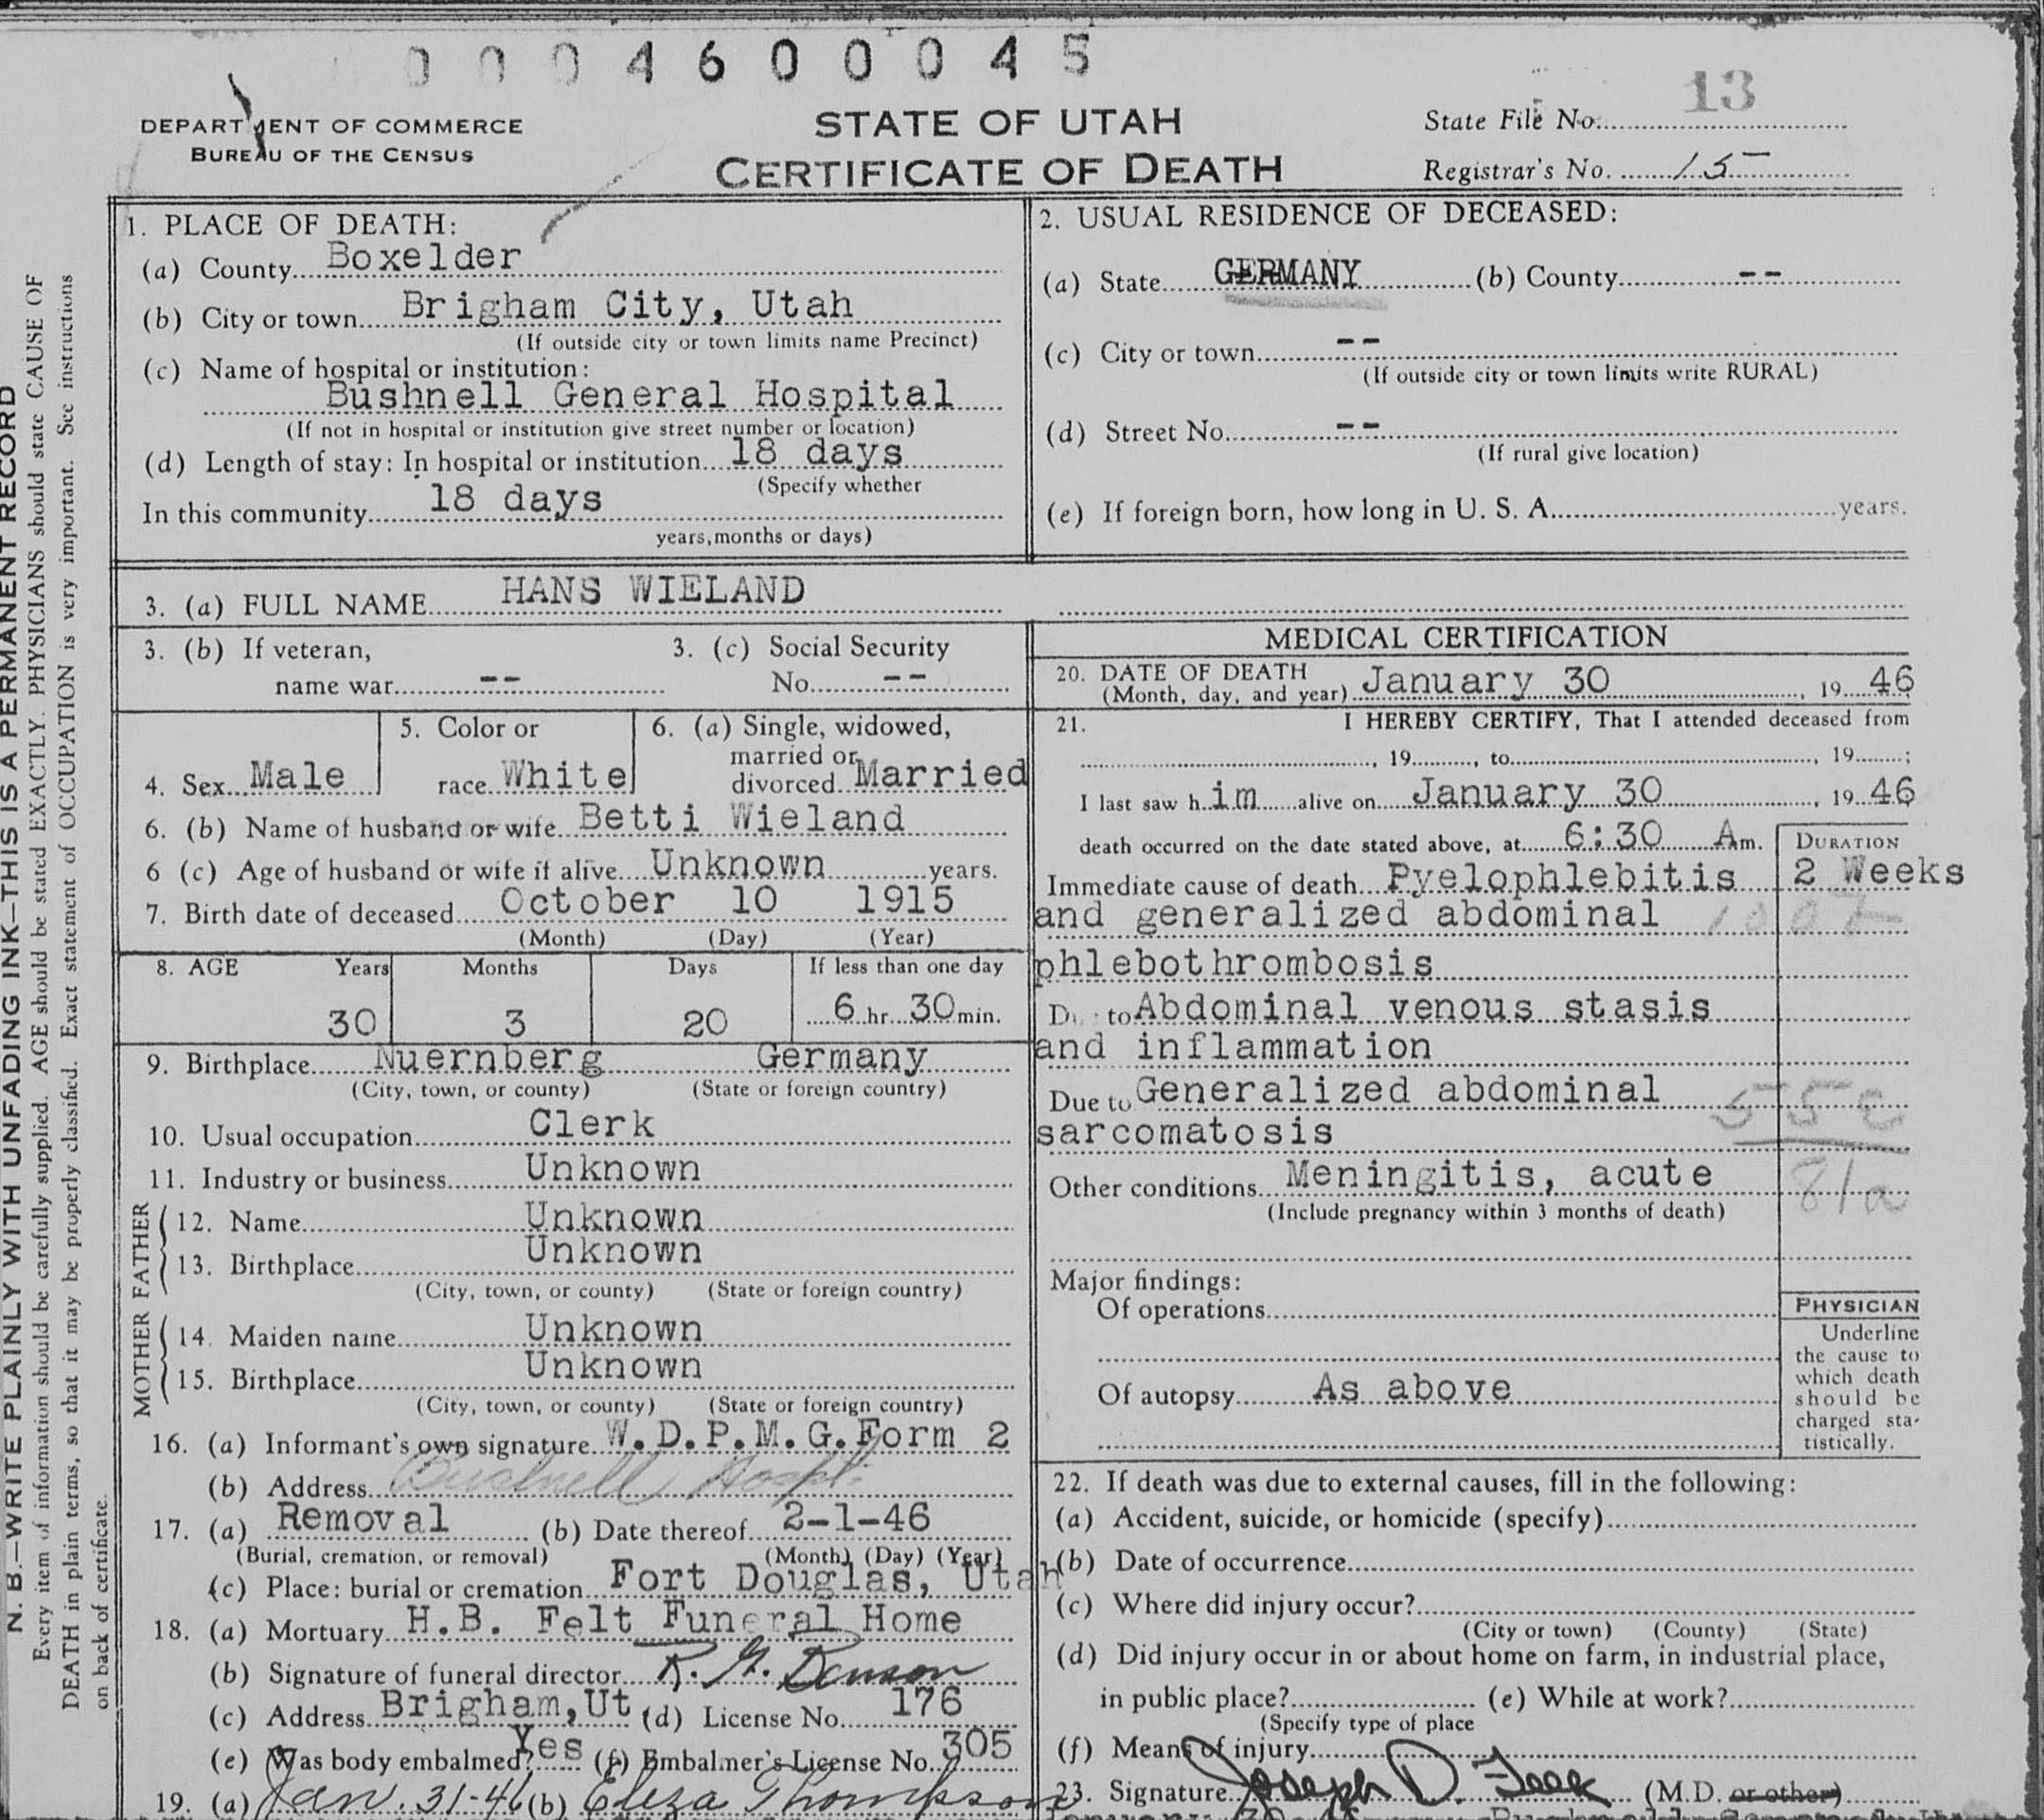 0 0 0 4 6 0 0 0 4 5
13
DEPARTMENT OF COMMERCE
BUREAU OF THE CENSUS
STATE OF UTAH
CERTIFICATE OF DEATH
State File No.
Registrar's No. 15
N. B.—WRITE PLAINLY WITH UNFADING INK—THIS IS A PERMANENT RECORD
Every item of information should be carefully supplied. AGE should be stated EXACTLY. PHYSICIANS should state CAUSE OF
DEATH in plain terms, so that it may be properly classified. Exact statement of OCCUPATION is very important. See instructions
on back of certificate.
1. PLACE OF DEATH:
(a) County Boxelder
(b) City or town Brigham City, Utah
(If outside city or town limits name Precinct)
(c) Name of hospital or institution:
Bushnell General Hospital
(If not in hospital or institution give street number or location)
(d) Length of stay: In hospital or institution 18 days
(Specify whether
In this community 18 days
years, months or days)
2. USUAL RESIDENCE OF DECEASED:
(a) State GERMANY (b) County --
(c) City or town --
(If outside city or town limits write RURAL)
(d) Street No. --
(If rural give location)
(e) If foreign born, how long in U. S. A. years.
3. (a) FULL NAME HANS WIELAND
3. (b) If veteran,
name war --
3. (c) Social Security
No. --
4. Sex Male
5. Color or
race White
6. (a) Single, widowed,
married or
divorced Married
6. (b) Name of husband or wife Betti Wieland
6 (c) Age of husband or wife if alive Unknown years.
7. Birth date of deceased October 10 1915
(Month) (Day) (Year)
8. AGE Years Months Days If less than one day
30 3 20 6 hr. 30 min.
9. Birthplace Nuernberg Germany
(City, town, or county) (State or foreign country)
10. Usual occupation Clerk
11. Industry or business Unknown
FATHER
12. Name Unknown
13. Birthplace Unknown
(City, town, or county) (State or foreign country)
MOTHER
14. Maiden name Unknown
15. Birthplace Unknown
(City, town, or county) (State or foreign country)
16. (a) Informant's own signature W.D.P.M.G. Form 2
(b) Address Bushnell Hospt.
17. (a) Removal (b) Date thereof 2-1-46
(Burial, cremation, or removal) (Month) (Day) (Year)
(c) Place: burial or cremation Fort Douglas, Utah
18. (a) Mortuary H.B. Felt Funeral Home
(b) Signature of funeral director
(c) Address Brigham,Ut (d) License No. 176
(e) Was body embalmed? Yes (f) Embalmer's License No. 305
19. (a) Jan. 31-46 (b) Eliza Thompson
MEDICAL CERTIFICATION
20. DATE OF DEATH
(Month, day, and year) January 30, 19 46
21. I HEREBY CERTIFY, That I attended deceased from
, 19 , to , 19 ;
I last saw h im alive on January 30, 19 46
death occurred on the date stated above, at 6:30 Am.
DURATION
Immediate cause of death Pyelophlebitis 2 Weeks
and generalized abdominal
phlebothrombosis
Due to Abdominal venous stasis
and inflammation
Due to Generalized abdominal
55e
sarcomatosis
Other conditions Meningitis, acute
81a
(Include pregnancy within 3 months of death)
Major findings:
Of operations
Of autopsy As above
PHYSICIAN
Underline
the cause to
which death
should be
charged sta-
tistically.
22. If death was due to external causes, fill in the following:
(a) Accident, suicide, or homicide (specify)
(b) Date of occurrence
(c) Where did injury occur?
(City or town) (County) (State)
(d) Did injury occur in or about home on farm, in industrial place,
in public place? (e) While at work?
(Specify type of place
(f) Means of injury
23. Signature Joseph D. (M.D. or other)